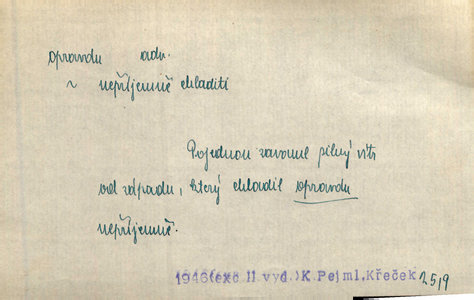 opravdu adv.
~ nepříjemně chladiti
Pojednou zavanul silný vítr
od západu, který chladil opravdu
nepříjemně.
1946(exc. II. vyd.) K. Pejml, Křeček 259